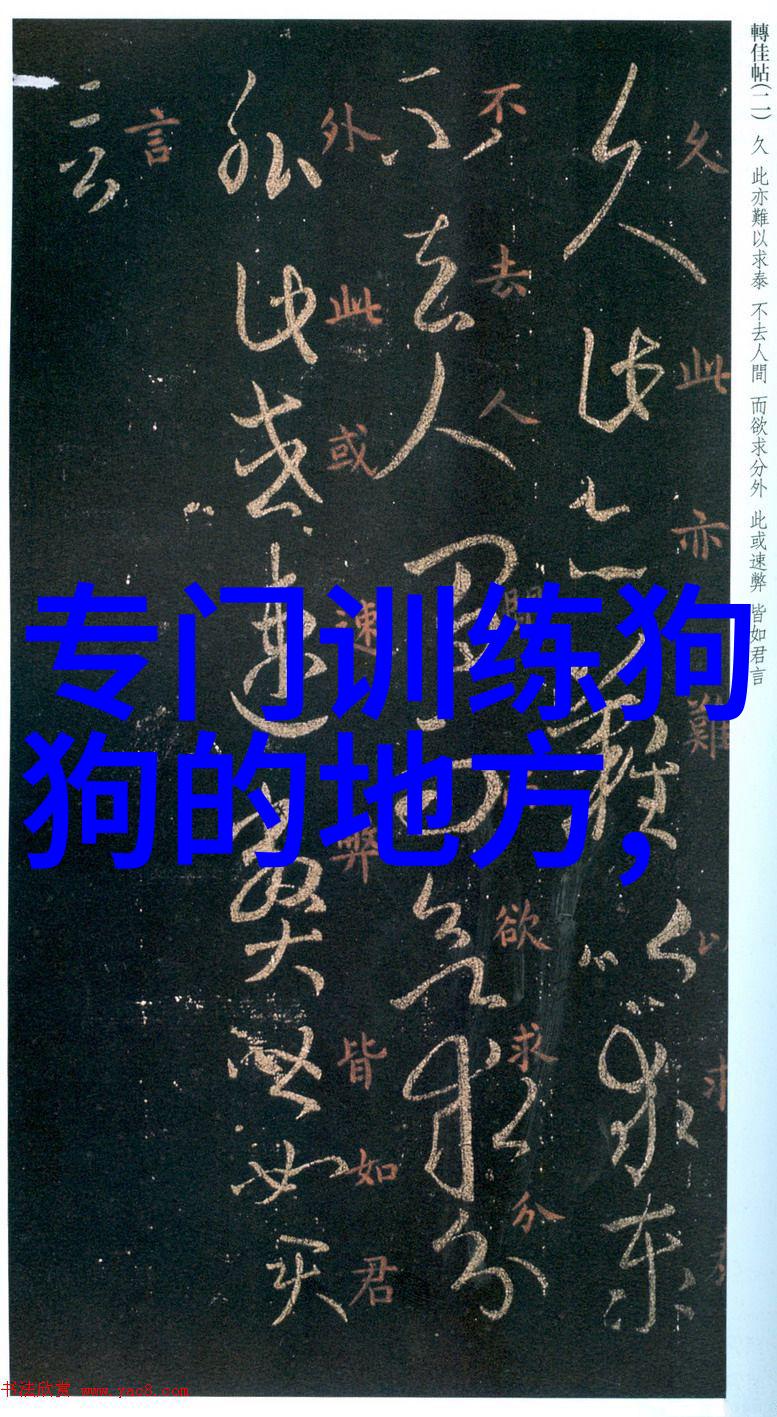 轉佳帖(二) 久 此亦難以求泰 不去人間 而欲求分外 此或速弊 皆如君言
久此亦難以求泰
不去人間而欲求分
外此或速弊皆如君
言
专门训练狗
狗的地方,
书法欣赏 www.yac8.com